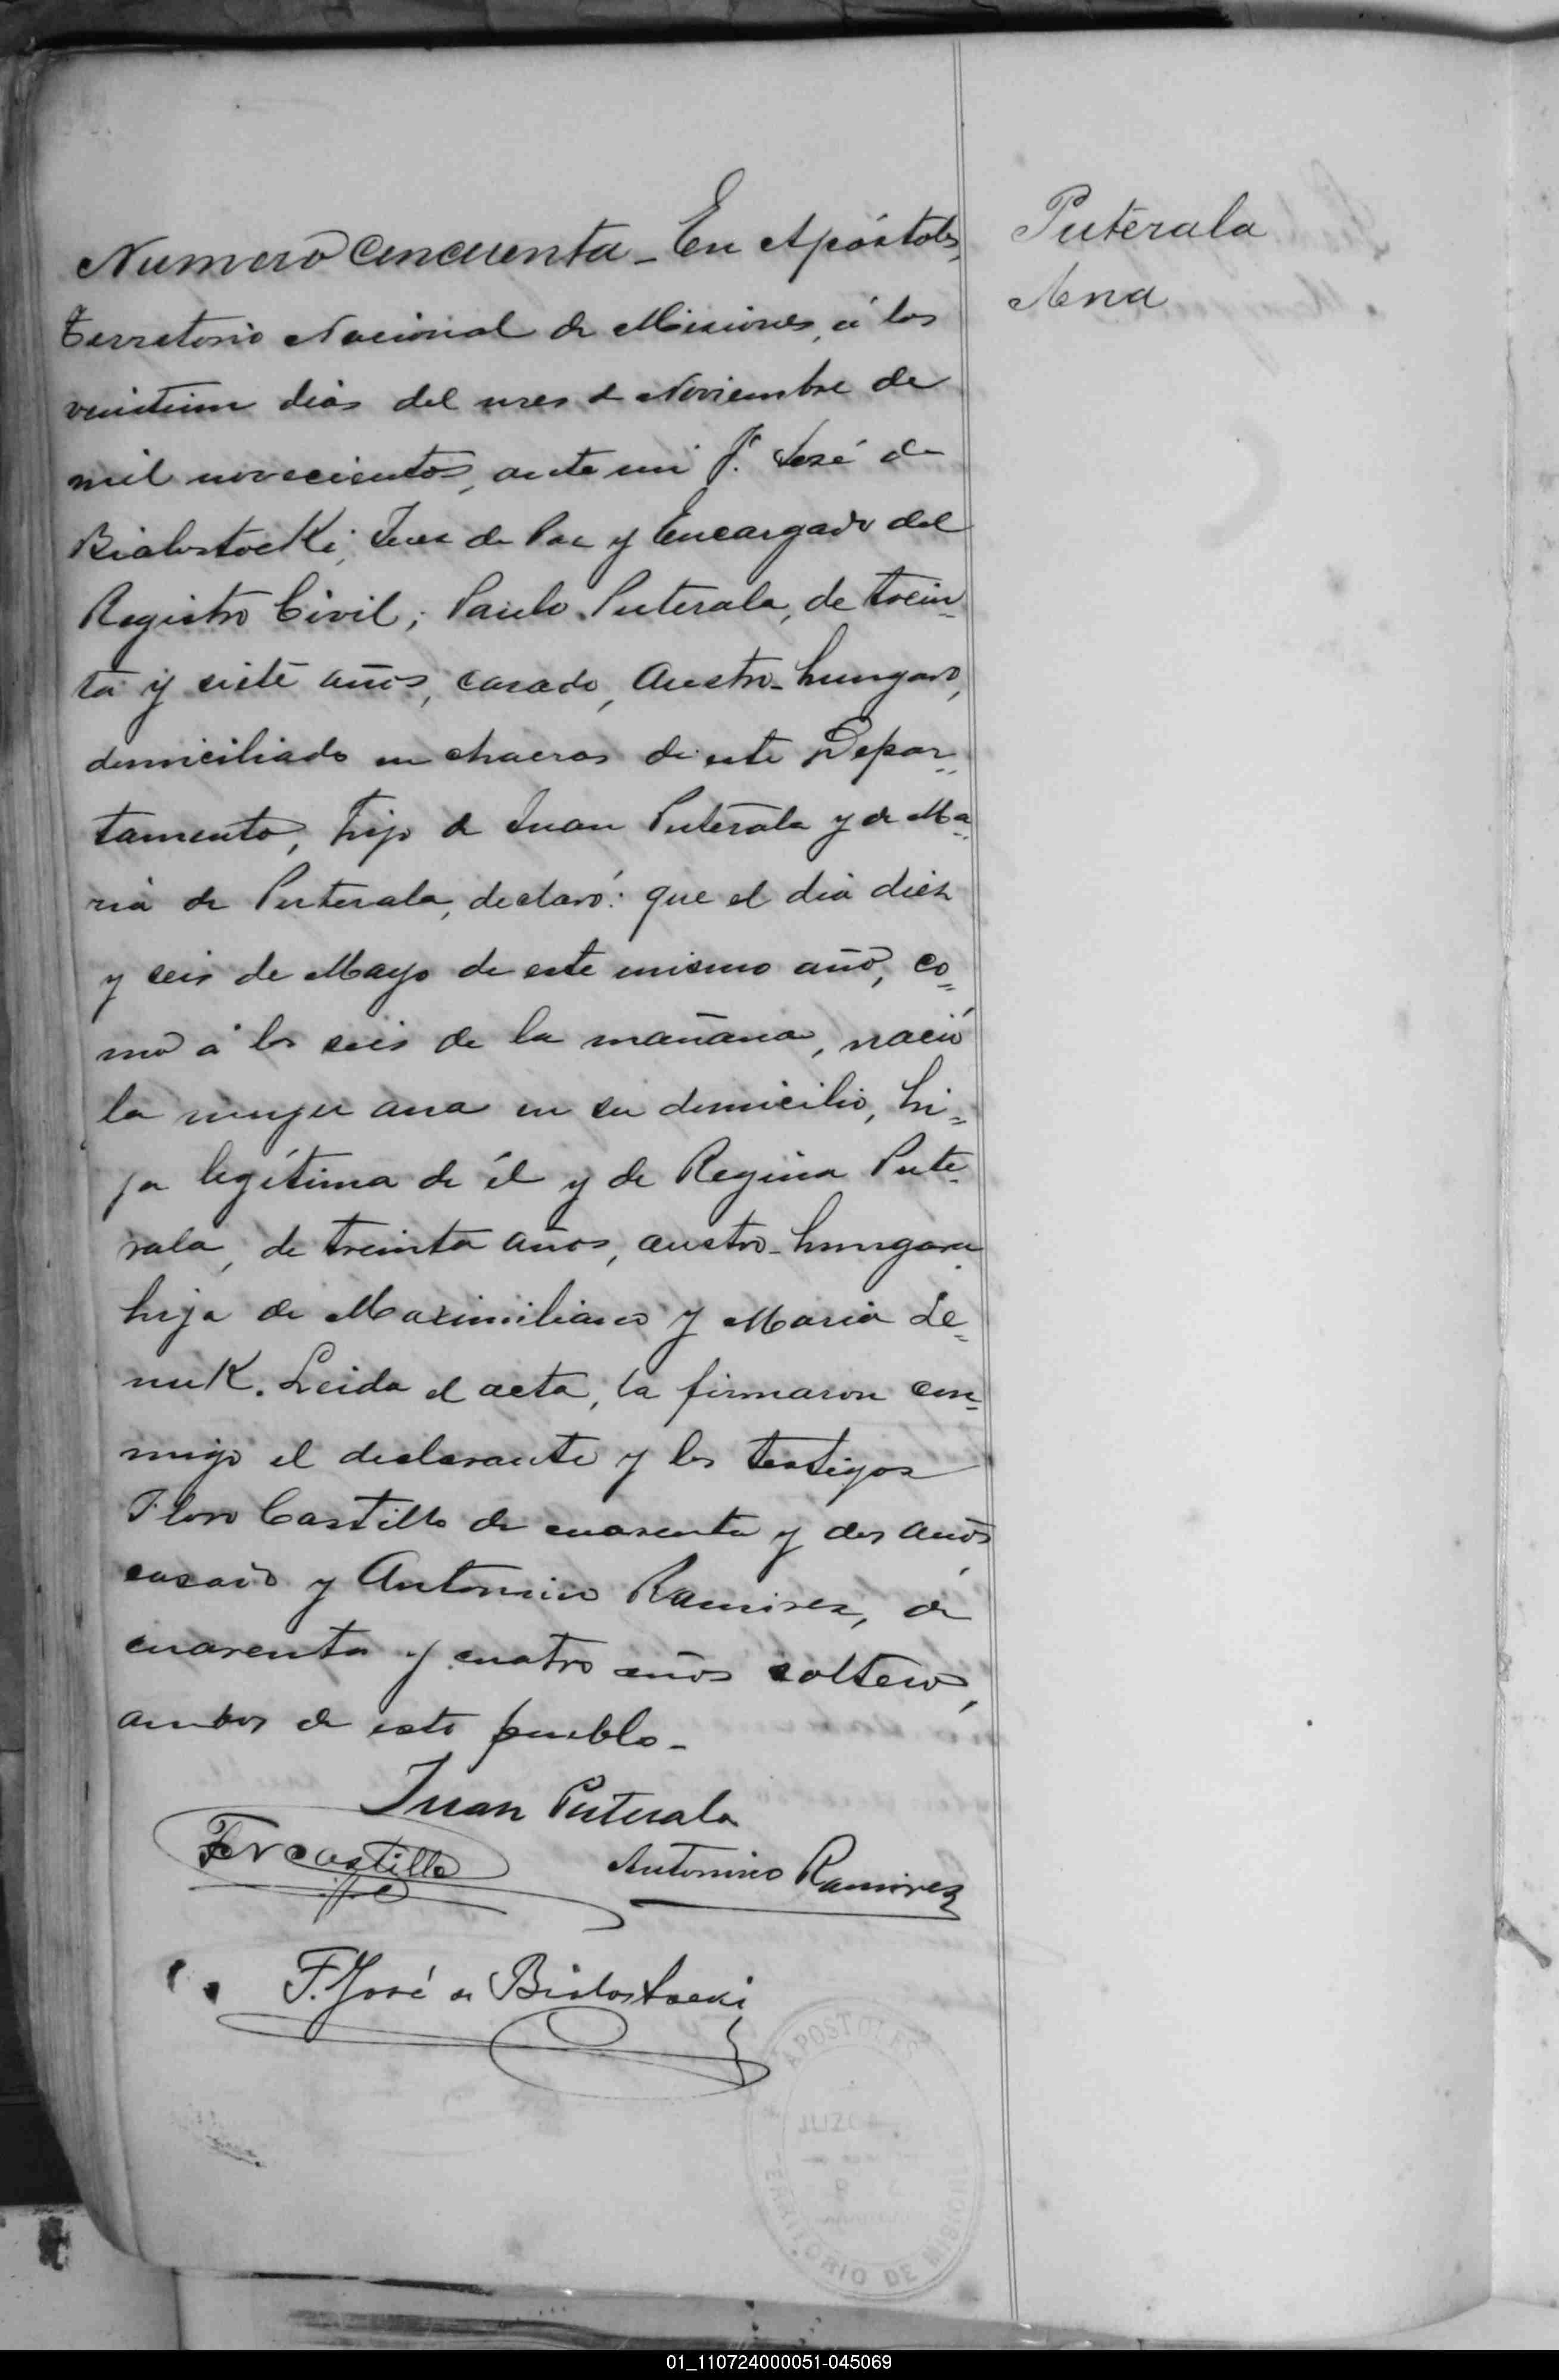 Numero Cincuenta _ En Apóstoles,
Territorio Nacional de Misiones, á los
veintiun dias del mes de Noviembre de
mil novecientos, ante mi F. José de
Bialostocki, Juez de Paz y Encargado del
Registro Civil; Paulo Puterala, de trein=
ta y siete años, casado, Austro-hungaro,
domiciliado en chacras de este Depar=
tamento, hijo de Juan Puterala y de Ma=
ria de Puterala, declaró: que el dia diez
y seis de Mayo de este mismo año, co=
mo á las seis de la mañana, nació
la mujer Ana en su domicilio, hi=
ja legítima de él y de Regina Pute=
rala, de treinta años, austro-hungara
hija de Maximiliano y Maria Le=
nuk. Leida el acta, la firmaron con=
migo el declarante y los testigos
Floro Castillo de cuarenta y dos años
casado y Antonino Ramirez, de
cuarenta y cuatro años soltero,
ambos de este pueblo _
Juan Puterala
Castillo
Antonino Ramirez
F. José de Bialostocki
Puterala
Ana
APOSTOLES
TERRITORIO DE MISIONES
01_110724000051-045069